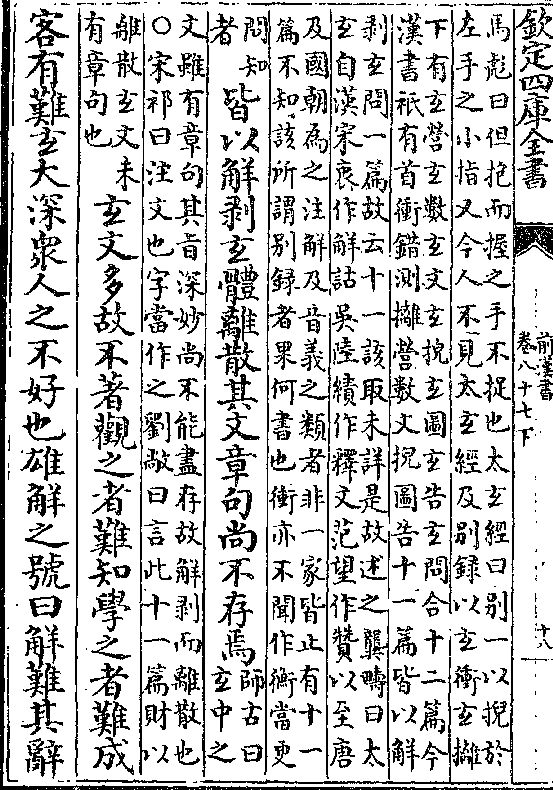 欽定四庫全書
前漢書
卷八十七下
十八
馬彪曰但抱而握之手不捉也太玄經曰别一以掜於
左手之小指又今人不見太玄經及别録以玄衝玄攡
下有玄營玄數玄文玄掜玄圖玄告玄問合十二篇今
漢書祇有首衝錯測攡營數文掜圖告十一篇皆以解
剥玄問一篇故云十一該取未詳是故述之龔疇曰太
玄自漢宋衷作解詁吳陸績作釋文范望作贊以至唐
及國朝為之注解及音義之類者非一家皆止有十一
篇不知該所謂别録者果何書也衝亦不聞作衡當更
問知
者
皆以解剥玄體離散其文章句尚不存焉
師古曰
玄中之
文雖有章句其旨深妙尚不能盡存故解剥而離散也
○宋祁曰注文也字當作之劉敞曰言此十一篇財以
離散玄文未
有章句也
玄文多故不著觀之者難知學之者難成
客有難玄大深衆人之不好也雄解之號曰解難其辭